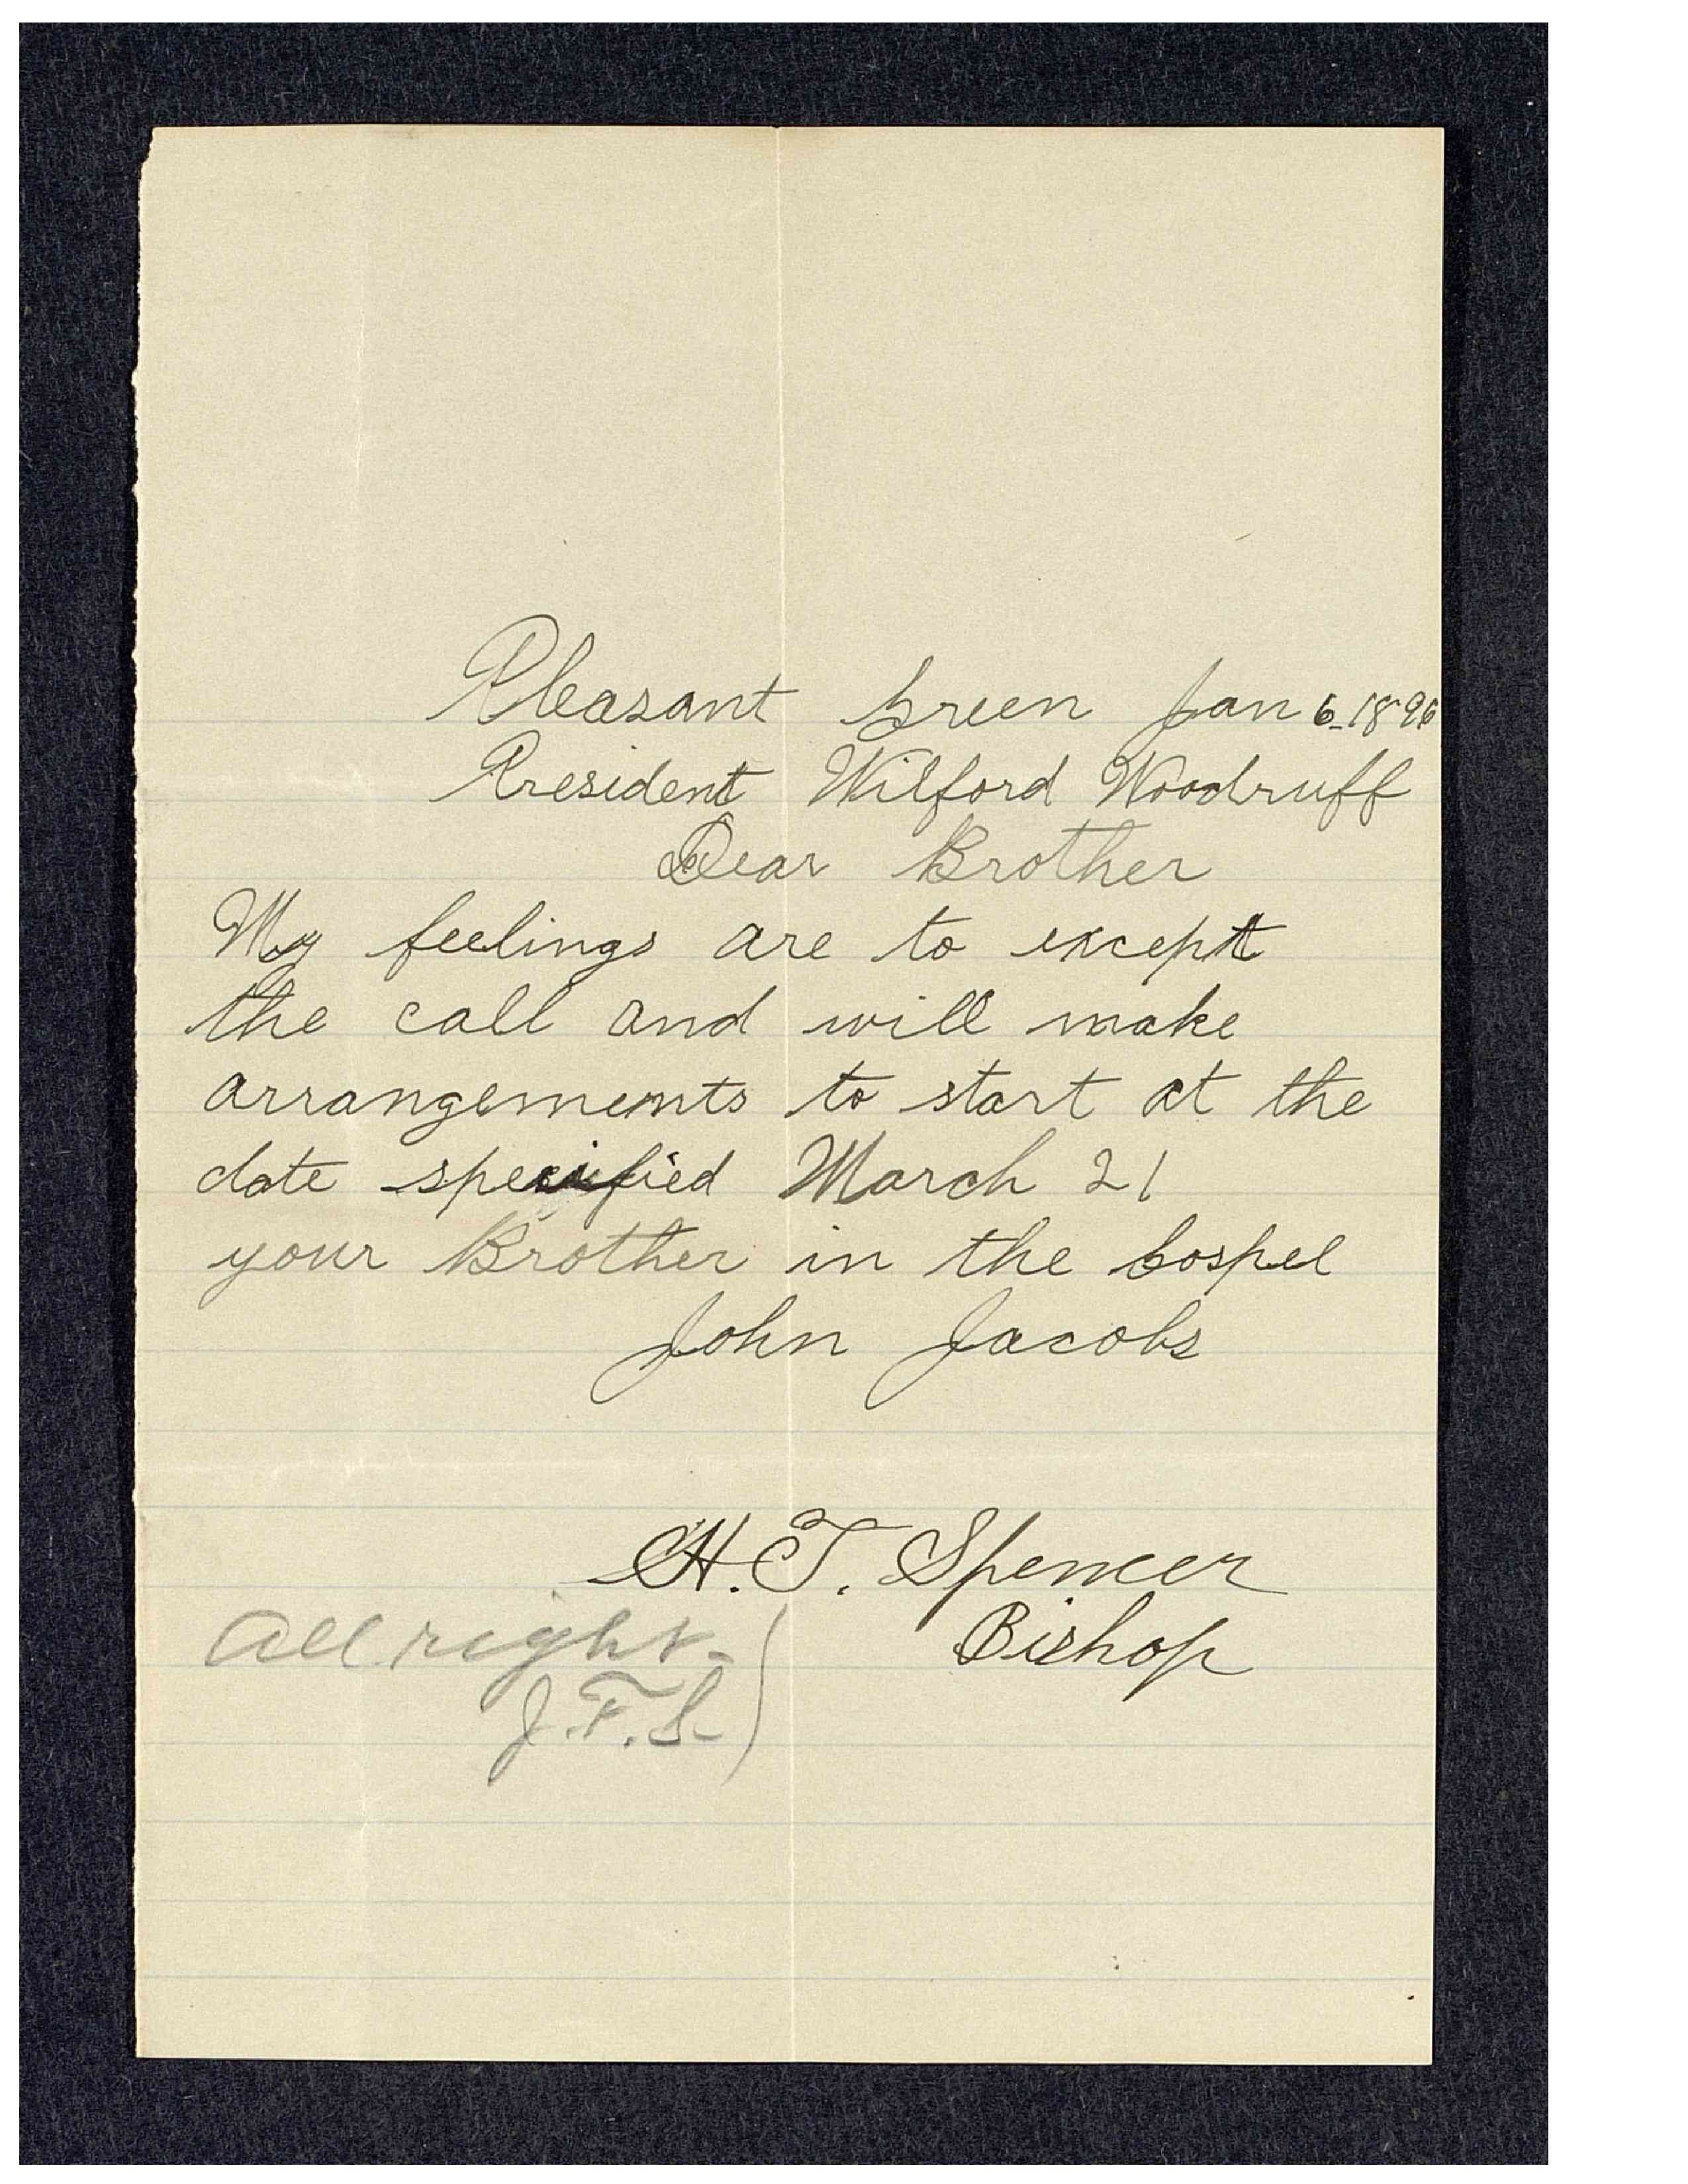 Pleasant Green Jan 6-1896
President Wilford Woodruff
Dear Brother
My feelings are to except
the call and will make
arrangements to start at the
date specified March 21
your Brother in the Gospel
John Jacobs
H. T. Spencer
Bishop
All right-
J.F.S.